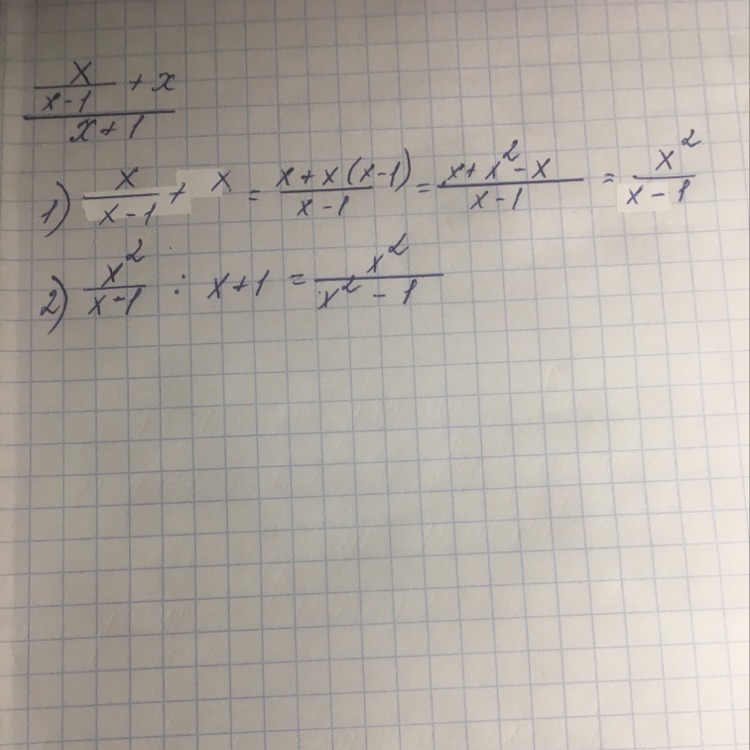 x/(x-1) + x
x+1
1) x/(x-1) + x = (x+x(x-1))/(x-1) = (x+x²-x)/(x-1) = x²/(x-1)
2) x²/(x-1) : x+1 = x²/(x²-1)